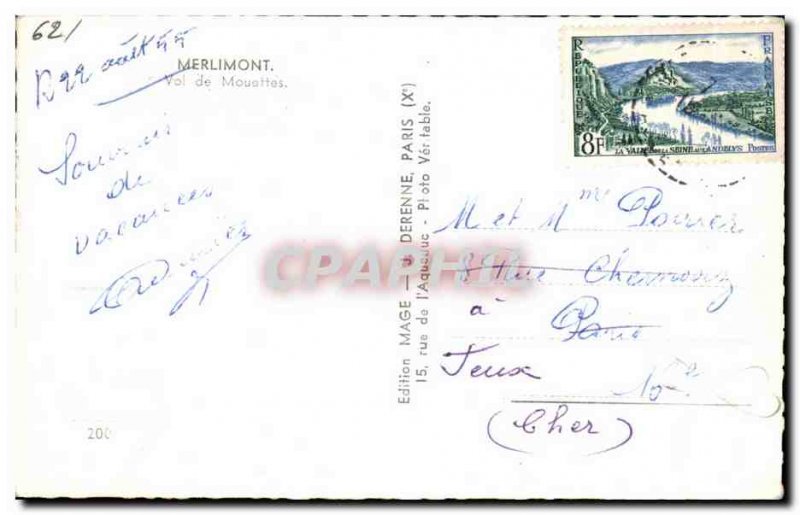 62/
22 août 55
MERLIMONT.
Vol de Mouettes.
Souvenir
de
vacances
Edition MAGE — J. DERENNE, PARIS (Xe)
15, rue de l'Aqueduc - Photo Véritable.
CPARPHIL
REPUBLIQUE
FRANÇAISE
8F
LA VALLÉE DE LA SEINE AUX ANDELYS POSTES
M et Mme
8 Rue
à Paris
10e
(Cher)
200